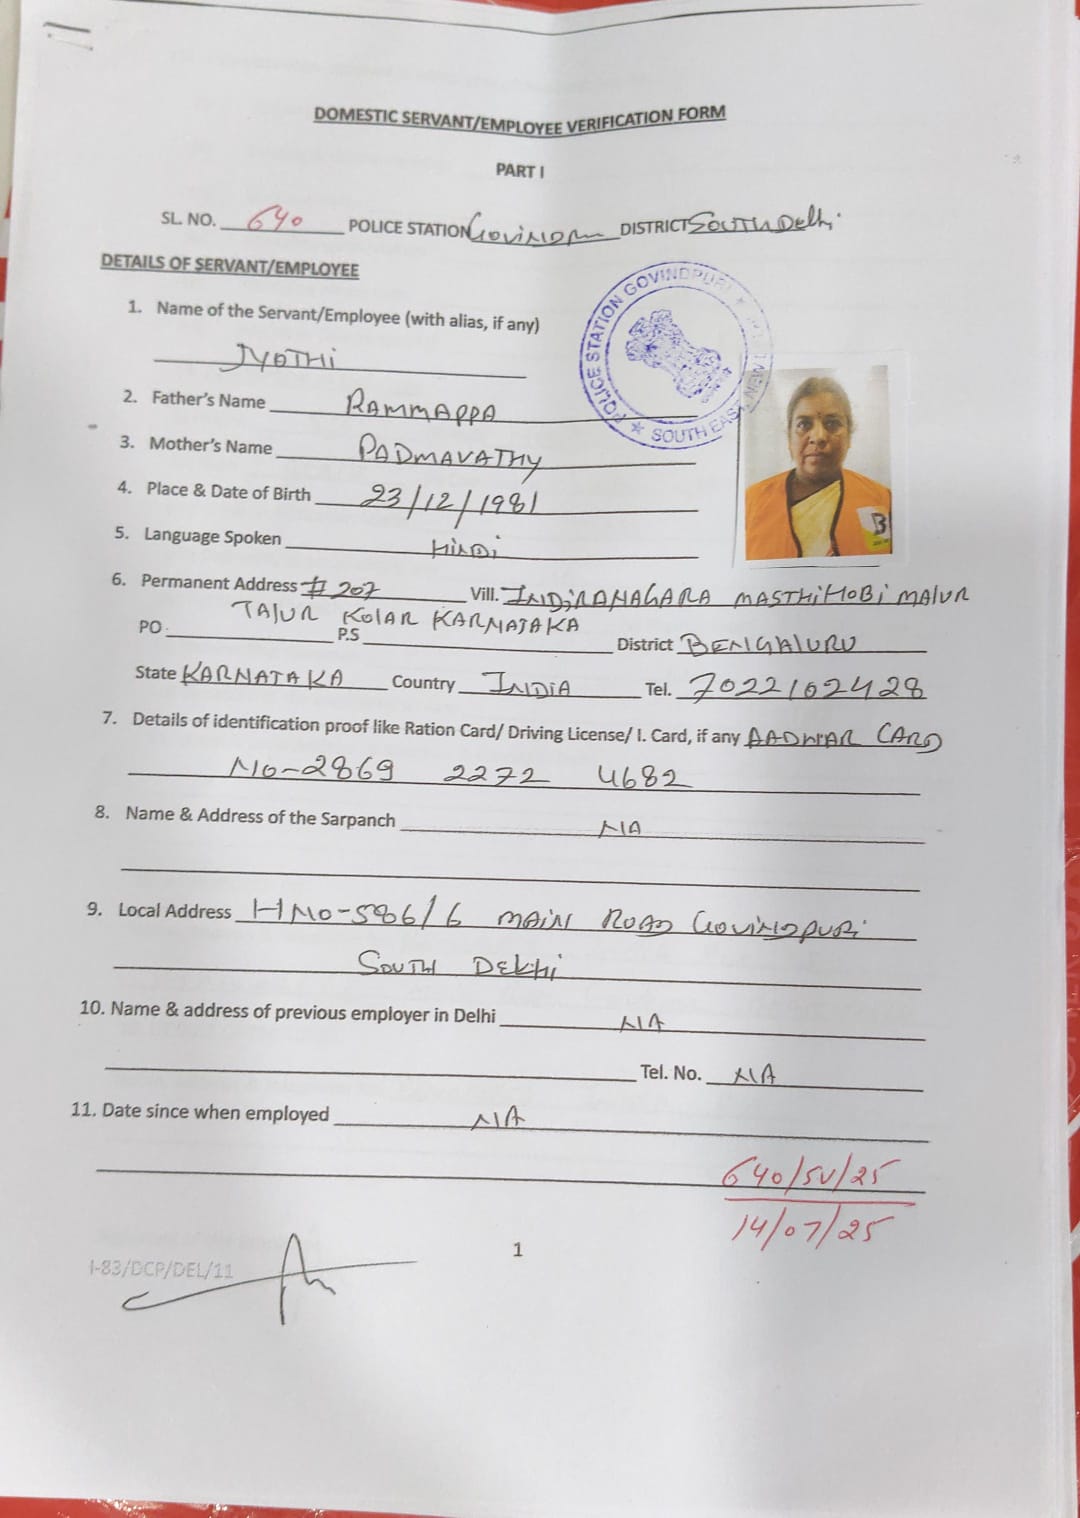 DOMESTIC SERVANT/EMPLOYEE VERIFICATION FORM
PART I
SL. NO. 640 POLICE STATION DISTRICT SOUTH Delhi
DETAILS OF SERVANT/EMPLOYEE
POLICE STATION GOVINDPURI
SOUTH EAST NEW
1. Name of the Servant/Employee (with alias, if any)
JYOTHI
2. Father's Name RAMMAPPA
3. Mother's Name PADMAVATHY
4. Place & Date of Birth 23/12/1981
5. Language Spoken HiNDi
B
6. Permanent Address # 207 Vill. INDiRANAGARA MASTHiHOBi MAlUR
TAlUR KOlAR KARNATAKA
PO P.S District BENGAlURU
State KARNATAKA Country INDiA Tel. 7022102428
7. Details of identification proof like Ration Card/ Driving License/ I. Card, if any AADHAR CARD
NO-2869 2272 4682
8. Name & Address of the Sarpanch NA
9. Local Address H NO-586/6 MAiN ROAD GOViNDPURi
SOUTH DElhi
10. Name & address of previous employer in Delhi NA
Tel. No. NA
11. Date since when employed NA
640/SV/25
14/07/25
1
I-83/DCP/DEL/11